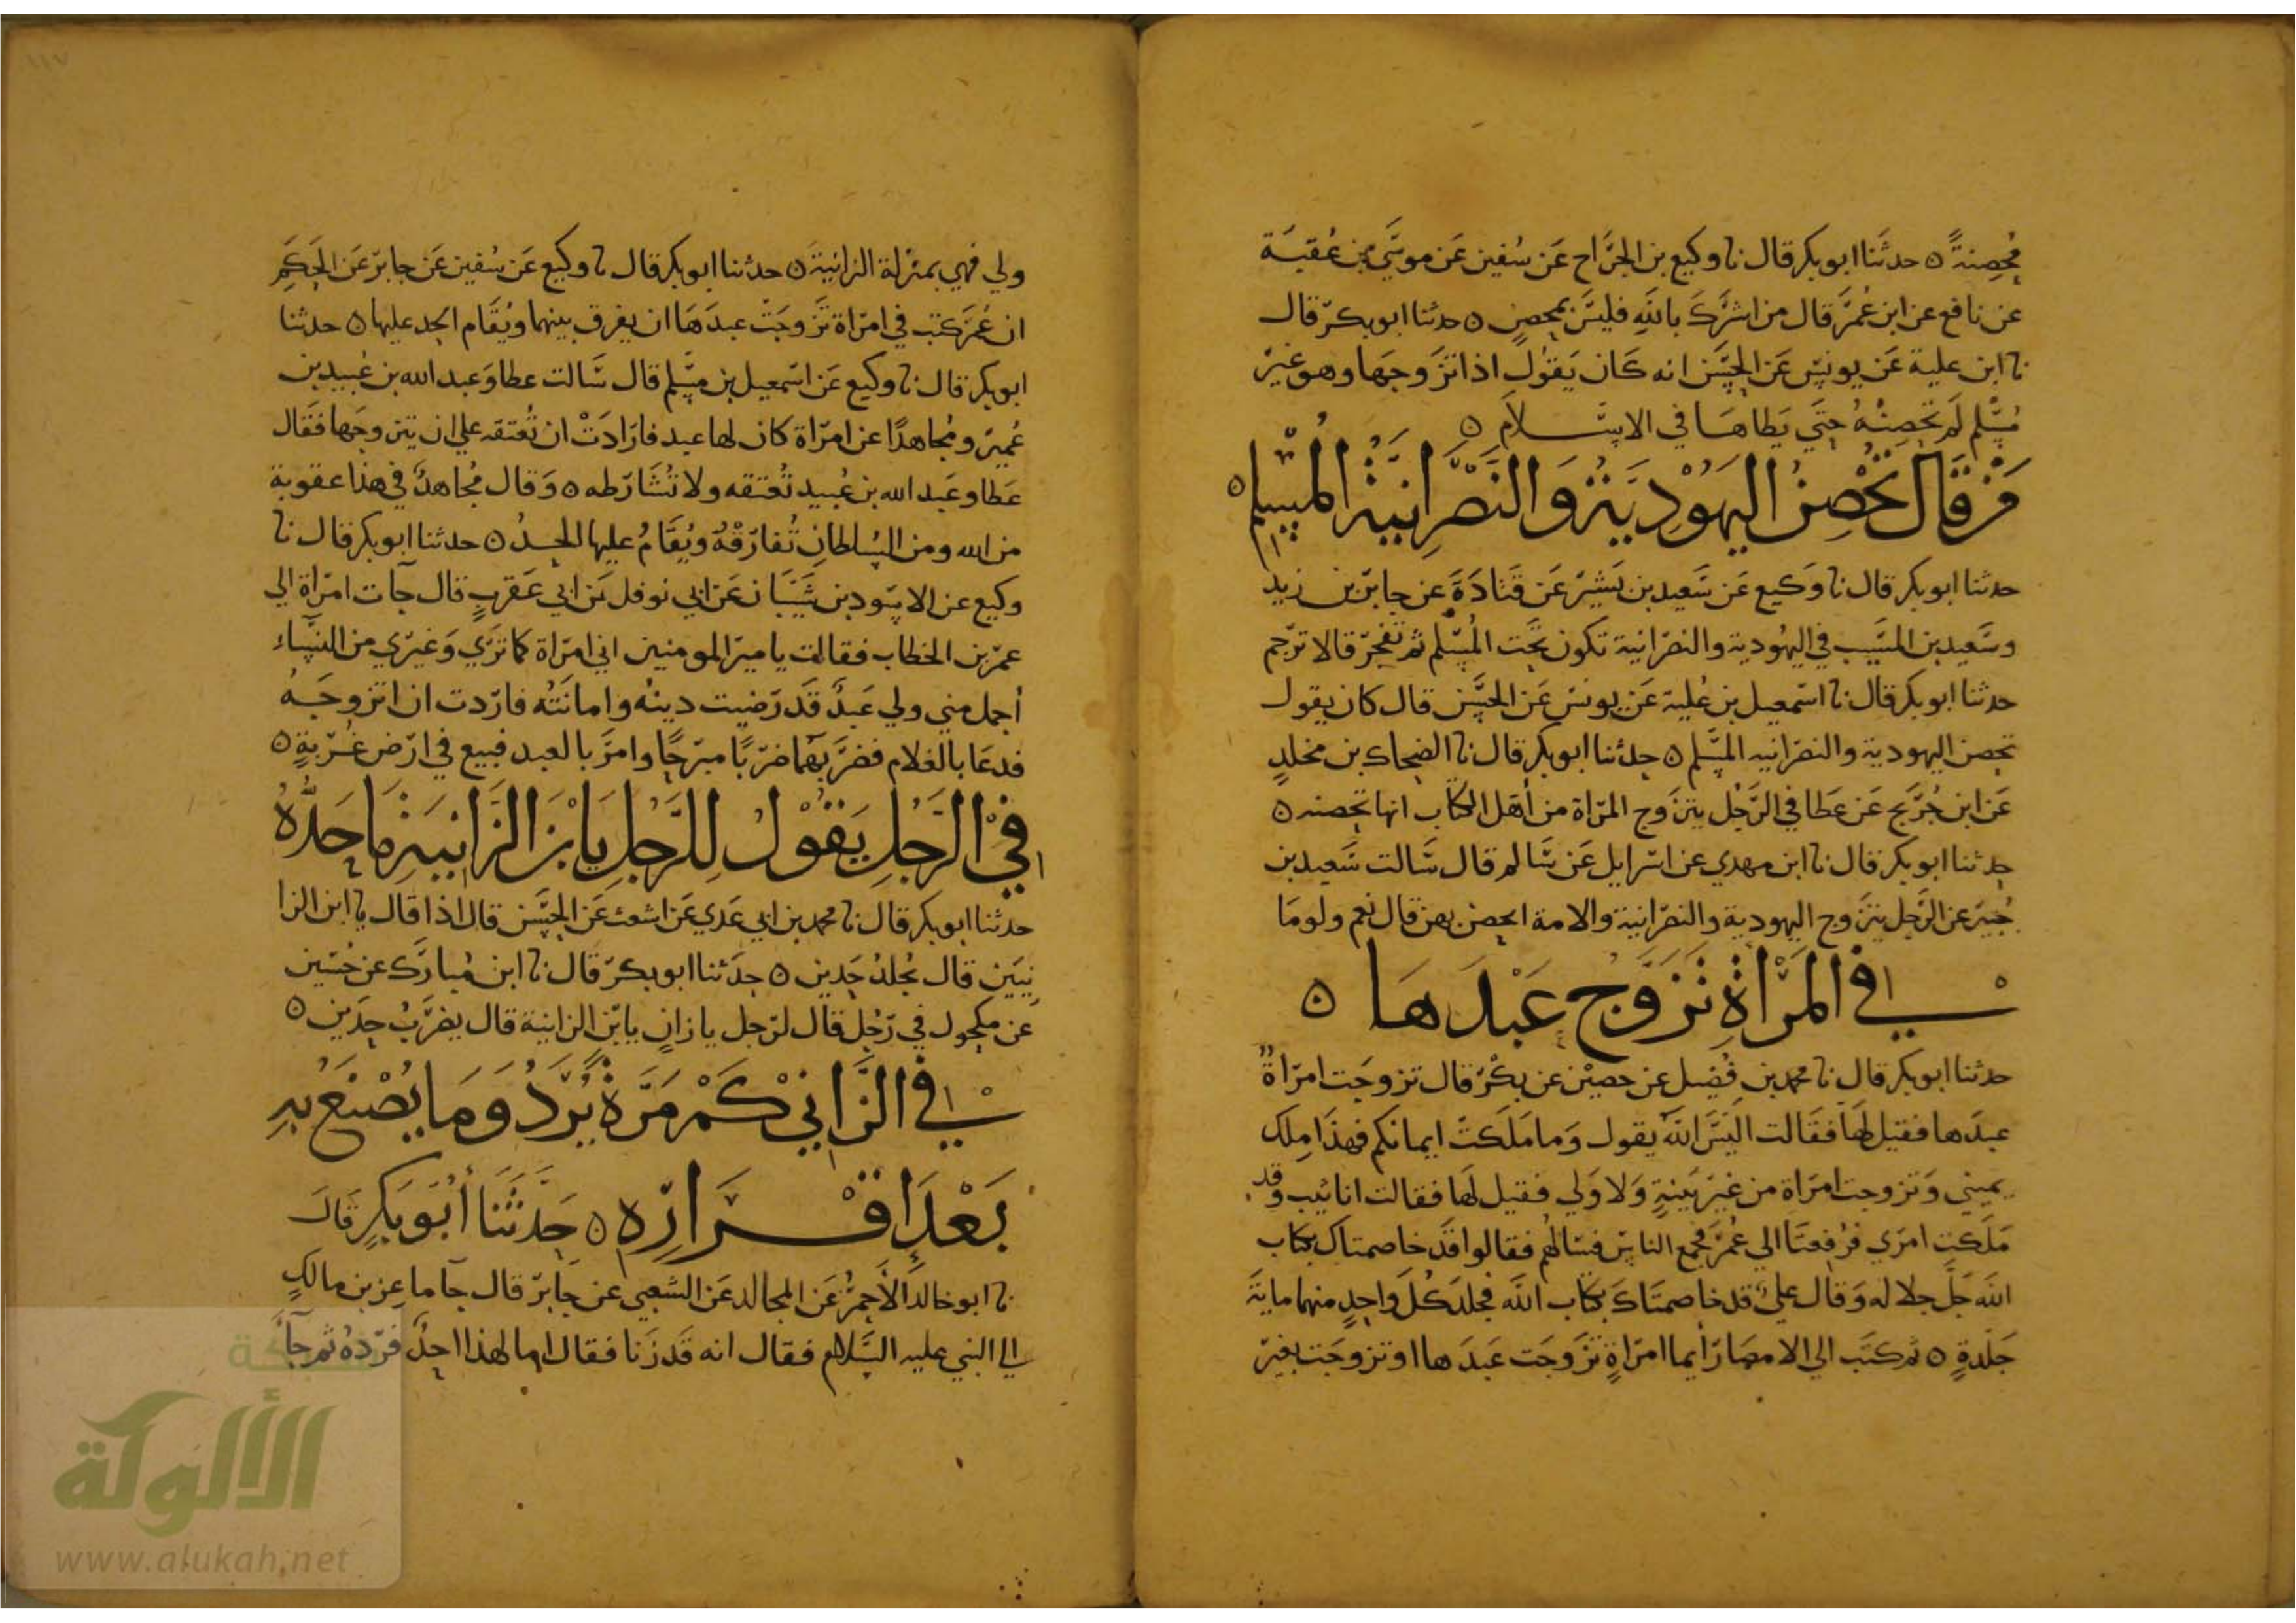 مُحصِنةً ๐ حدثَنا ابو بكر قال نا وكيع بن الجرَّاح عَن سُفين عَن موسَي بن عُقبَة
عن نافع عن ابن عُمَر قال من اشرَكَ باللهِ فليسَ بمحصنٍ ๐ حدثنا ابو بكر قال
نا ابن علية عَن يونس عَن الحسَن انه كَان يَقُول اذا تزَوجَها وهو غير
مُسْلم لَم تحصِنْهُ حتَي يَطاهَا في الاسْلام ๐
مَنْ قَالَ تُحْصِنُ اليَهُوْدِيَّةُ وَالنَّصْرَانِيَّةُ المُسْلِم ๐
حدثنا ابو بكر قال نا وَكيع عَن سَعيد بن بَشير عَن قَتادَةَ عن جابر بن زيد
وسَعيد بن المسَيب في اليهُودية والنصرانية تكون تحَت المُسْلم ثم تَفجر قالا ترجم
حدثنا ابو بكر قال نا اسمعيل بن عُلية عَن يونس عَن الحسَن قال كان يقول
تحصن اليهودية والنصرانيه المسْلم ๐ حدثنا ابو بكر قال نا الضحاك بن مخلدٍ
عَن ابن جُرَيج عَن عَطا في الرَجُل يتزَوج المرَاة من أهَل الكتاب انها تحصنه ๐
حدثنا ابو بكر قال نا ابن مهدي عن اسرايل عَن سَالم قال سَالت سَعيد بن
جُبير عن الرَجل يتزَوج اليهودية والنصرَانية والامة ايحصن بهن قال نعم ولو ما
في المَرْأةِ تَزَوَّجُ عَبْدَهَا ๐
حدثنا ابو بكر قال نا محمد بن فُضيل عن حصيْن عن بكْر قال تزوجَت امرَاةٌ
عبدَها فقيل لهَا فقَالت اليَسَ اللهُ يقول وَما مَلَكتْ ايمانكم فهذَا مِلك
يميني وَتزوجت امرَاة من غير بَينةٍ وَلا وَلي فقيل لهَا فقالت انا ثيب وقد
مَلَكت امرَي فرُفعتَا الي عُمَر فجمع الناس فسَالهُم فقالوا قَد خاصمتاك بكتاب
الله جَلَّ جلاله وَقال عليٌ قد خاصمتَاكَ بكتاب اللهَ فجلدَ كُلَ واحدٍ منهما مايةَ
جَلَدةٍ ๐ ثم كتَب الي الامصَار أيما امرَاةٍ تزَوجَت عَبدَها او تزوجَت بغير
ولي فهي بمنزلة الزانية ๐ حدثنا ابو بكر قال نا وكيع عَن سُفين عَن جابر عَن الحَكَمِ
ان عُمَر كتب في امرَاة تزَوجَتْ عبدَهَا ان يفرق بينهما ويُقَام الحد عليها ๐ حدثنا
ابو بكر قال نا وكيع عَن اسمعيل بن مسْلم قال سَالت عطا وَعبد الله بن عُبيد بن
عُمير ومُجاهدًا عن امرَاة كان لها عبد فارَادَتْ ان تُعتقه علي ان يتزوجَها فقَال
عَطا وعَبد الله بن عُبيد تُعتقه ولا تُشَارطه ๐ وَقال مُجاهدٌ في هذا عقوبة
من الله ومن السُلطانِ تُفارقْهُ ويُقَامُ عليها الحدُ ๐ حدثنا ابو بكر قال نا
وكيع عن الاسوَد بن شَيبَان عَن ابي نوفل بَن ابي عَقربٍ قال جآت امرَاة الي
عمر بن الخطاب فقالت يا امير المومنين اني امرَاة كما ترَي وَغيري من النسَاء
أجمل مني ولي عَبدٌ قَد رَضيت دينهُ وامانَتُه فارَدت ان اتزوجَهُ
فدعَا بالغلام فضرَبَهُما ضربًا مبرحًا وامَر بالعبد فبيع في ارض غُربةٍ ๐
فِي الرَّجُلِ يَقُوْلُ لِلرَّجُلِ يَا ابْنَ الزَّانِيَيْنِ مَا حَدُّهُ
حدثنا ابو بكر قال نا محمد بن ابي عَدي عَن اشعث عَن الحسَن قال اذا قال يا ابن الزا
نِيَين قال يُجلدُ حَدين ๐ حدَثنا ابو بكر قال نا ابن مُبارَك عن حُسَين
عن مكحول في رَجُل قال لرَجل يا زانٍ يا بن الزانية قال يضرَبُ حدَين ๐
في الزَّانيْ كَمْ مَرَّةً يُرَدُّ وَمَا يُصْنَعُ بِهِ
بَعْدَ اِقْرَارِهِ ๐ حَدَّثَنَا أبُو بَكرٍ قَالَ
نا ابو خالد الأحمر عَن المجالد عَن الشعبي عَن جَابر قال جآ ماعِز بن مالكٍ
الي النبي عليه السَلام فقال انه قَد زَنا فقال اما لهذا احدٌ فردهُ ثم جآ
١١٧
شبكة
الألوكة
www.alukah.net